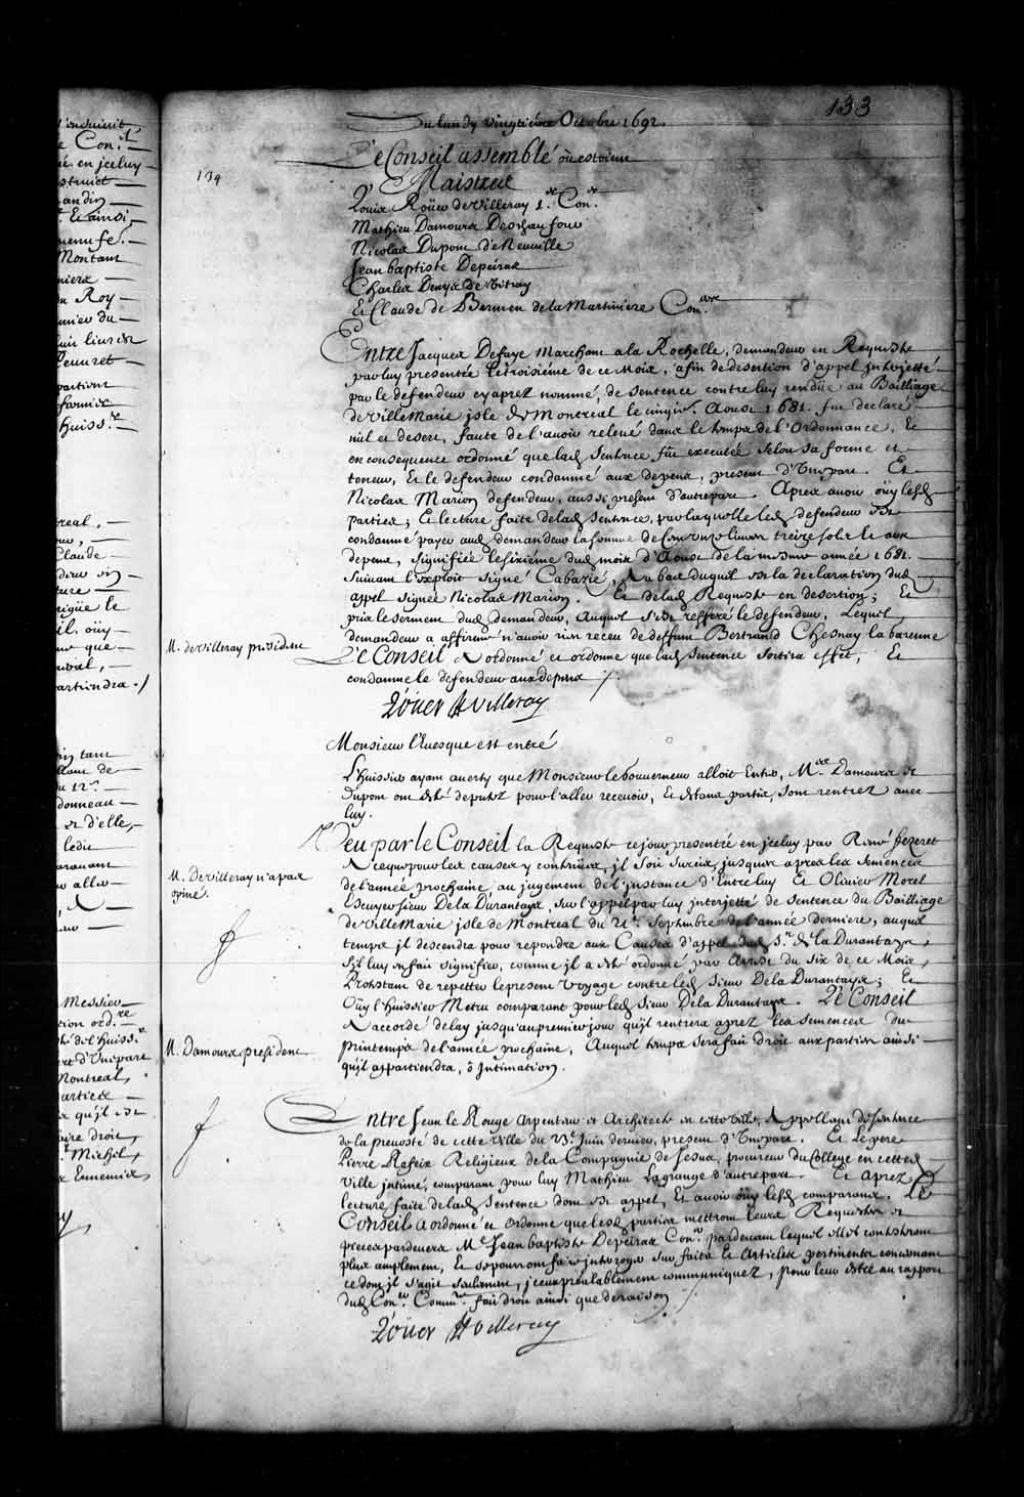 133
Du lundy vingtiéme Octobre 1692.
Le Conseil assemblé où estoient
134
Maistres
Louis Roüer de Villeray 1.er Con.er
Mathieu Damours Deschaufour
Nicolas Dupont de Neuuille
Jean baptiste Depeiras
Charles Denys de Vitray
Et Claude de Bermen de la Martiniere Con.ers
Entre Jacques Defaye Marchant a la Rochelle, demandeur en Requeste
par luy presentée le troisiéme de ce Mois, afin de desertion d'appel interjetté
par le defendeur cy aprez nommé, de sentence contre luy rendüe au Bailliage
de Ville Marie isle de Montreal le cinqie. Aoust 1681. fut declaré
nul et desert, faute de l'auoir releué dans le temps de l'Ordonnance, Et
en consequence ordonné que lad. sentence fut executée selon sa forme et
teneur, Et le defendeur condamné aux depens, present d'Vne part. Et
Nicolas Marion defendeur, aussi present d'autre part. Apres auoir oüy lesd.
parties; Et lecture faite de lad. sentence, par laquelle led. defendeur est
condamné payer aud. demandeur la somme de liures treize sols et aux
depens, signifiée le sixiéme dud. mois d'Aoust de la mesme année 1681.
Suiuant l'exploit signé Cabazié, au bas duquel est la declaration dud.
appel signée Nicolas Marion. Et de lad. Requeste en desertion; Et
pris le serment dud. demandeur, auquel s'est refferé le defendeur, Lequel
demandeur a affirmé n'auoir rien receu de deffunt Bertrand Chesnay la Garenne
M. de Villeray president
Le Conseil a ordonné et ordonne que lad. sentence sortira effet, Et
condamne le defendeur aux depens ./.
Roüer de Villeray
Monsieur l'Euesque est entré
L'huissier ayant auerty que Monsieur le Gouuerneur alloit Entrer, M.rs Damours et
Dupont ont esté deputez pour l'aller receuoir, Et estans partis, sont rentrez auec
luy.
Veu par le Conseil la Requeste ce jour presentée en jceluy par René fezeret
A ce que pour les causes y contenües, il soit surcis, jusques apres les semences
M. de Villeray n'a pas
opiné.
de l'année prochaine au jugement de l'instance d'Entre luy Et Oliuier Morel
Escuyer sieur De la Durantaye, sur l'appel par luy interjetté de sentence du Bailliage
de Ville Marie isle de Montreal du 21e. Septembre de l'année derniere, auquel
temps il descendra pour repondre aux Causes d'appel dud. S.r de la Durantaye,
s'il luy en fait signifier, comme il a esté ordonné par Arrest du six de ce Mois,
Protestant de repetter le present Voyage contre led. sieur De la Durantaye; Et
Oüy l'huissier Metru comparant pour led. sieur De la Durantaye. Le Conseil
A accordé delay jusqu'au premier jour qu'il rentrera aprez les semences du
M. Damours president
printemps de l'année prochaine, Auquel temps sera fait droit aux parties ainsi
qu'il appartiendra, o Intimation.
Entre Jean le Rouge Arpenteur et Architecte en cette Ville, Appellant de sentence
de la preuosté de cette Ville du 23e. Juin dernier, present d'Vne part. Et le pere
Pierre Rafeix Religieux de la Compagnie de Jesus, procureur du College en cetted.
Ville intimé, comparant pour luy Mathieu Lagrange d'autre part. Et aprez
lecture faite de lad. sentence dont est appel, Et auoir oüy lesd. comparans. Le
Conseil a ordonné et ordonne que lesd. parties mettront leurs Requestes et
pieces pardeuers M.e Jean baptiste Depeiras Con.er pardeuant lequel elles contesteront
plus amplement, Et se pourront faire interroger sur faits Et Articles pertinents concernant
ce dont il s'agit seulement, jceux prealablement communiquez, pour leur estre au rapport
dud. Con.er Comm.re fait droit ainsi que de raison ./.
Roüer de Villeray